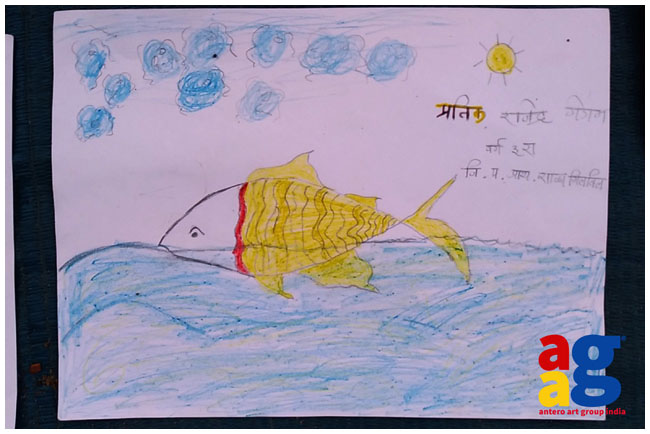 प्रतिक राजेंद्र
वर्ग ३रा
जि. प. प्राथ. शाळा
agag
antero art group india